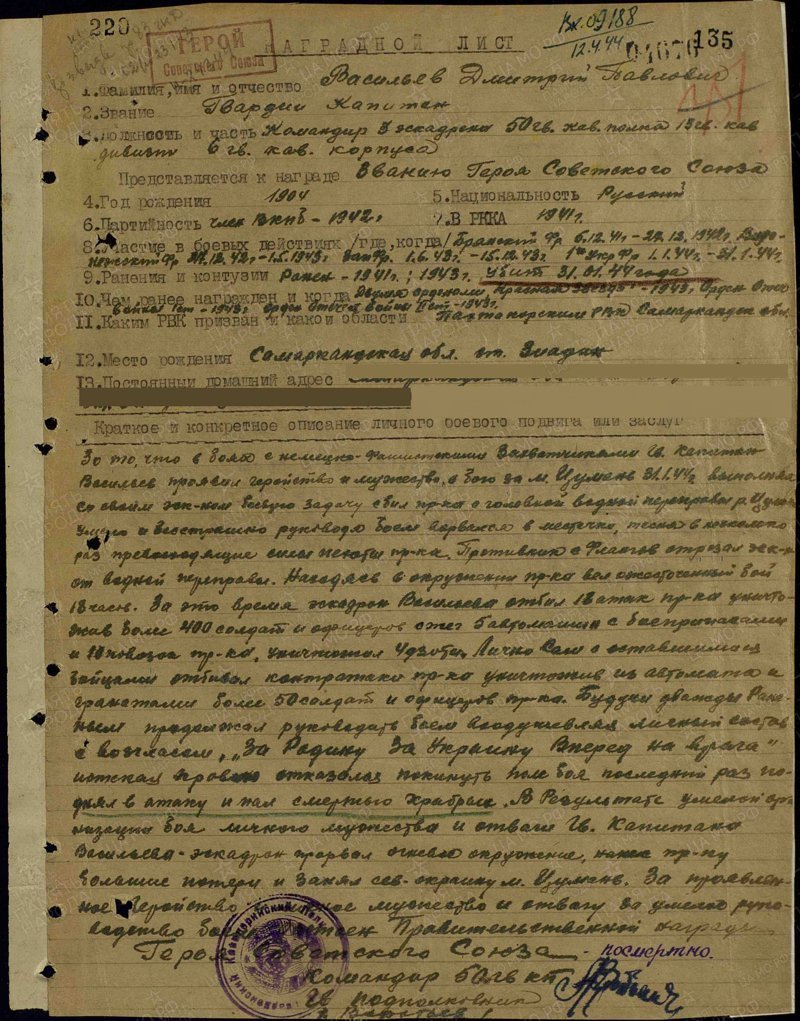 220
Вх. 09188
12.4.44
04070
135
ГЕРОЙ
Советского Союза
НАГРАДНОЙ ЛИСТ
1. Фамилия, имя и отчество Васильев Дмитрий Павлович
2. Звание Гвардии Капитан
3. Должность и часть Командир 3 эскадрона 50 гв. кав. полка 13 гв. кав
дивизии 6 гв. кав. корпуса
Представляется к награде Званию Героя Советского Союза
4. Год рождения 1904 5. Национальность Русский
6. Партийность член ВКПб - 1942г 7. В РККА 1941г.
8. Участие в боевых действиях /где, когда/ Брянский Фр 6.12.41г - 1942г. Воро-
нежский Фр 42г - 1.5.1943г Зап Фр. 1.6.43г - 15.12.43г 1ый Укр Фр 1.1.44г - 31.1.44г.
9. Ранения и контузии Ранен - 1941г; 1943г. убит 31.01.44 года
10. Чем ранее награжден и когда Двумя орденами Красная Звезда - 1943г. Орден Отеч
войны 1ст - 1943г орден Отечест войны 2 ст - 1943г.
11. Каким РВК призван и какой области РВК Самаркандск обл.
12. Место рождения Самаркандская обл. ст. Зиадин
13. Постоянный домашний адрес
Краткое и конкретное описание личного боевого подвига или заслуг
За то, что в боях с немецко-фашистскими Захватчиками Гв. Капитан
Васильев проявил геройство и мужество, в бою за м. Цумань 31.1.44г. выполняя
со своим эск-ном боевую задачу сбил пр-ка с головной водной переправы р.
Умело и бесстрашно руководя боем ворвался в местечко, тесня в несколько
раз превосходящие силы пехоты пр-ка. Противник с Флангов отрезал эск-н
от водной переправы. Находясь в окружении пр-ка вел ожесточенный бой
18 часов. За это время эскадрон Васильева отбил 18 атак пр-ка уничто-
жив более 400 солдат и офицеров сжег 5 автомашин с боеприпасами
и 18 повозок пр-ка, уничтожил 4 дзота. Лично Сам с оставшимися
бойцами отбивал контратаки пр-ка уничтожив из автомата и
гранатами более 50 солдат и офицеров пр-ка. Будучи дважды Ране-
ным продолжал руководить боем воодушевляя личный состав
с возгласом, „За Родину За Украину Вперед на врага"
истекая кровью отказался покинуть поле боя последний раз по-
днял в атаку и пал смертью храбрых. В Результате умелой орга-
низации боя личного мужества и отваги Гв. Капитана
Васильева - эскадрон прорвал огневое окружение, нанес пр-ку
большие потери и занял сев. окраину м. Цумань. За проявлен-
ное Геройство мужество и отвагу за умелое руко-
водство боем Достоин Правительственной награды
Героя Советского Союза - посмертно.
Командир 50 гв кп
Гв подполковник